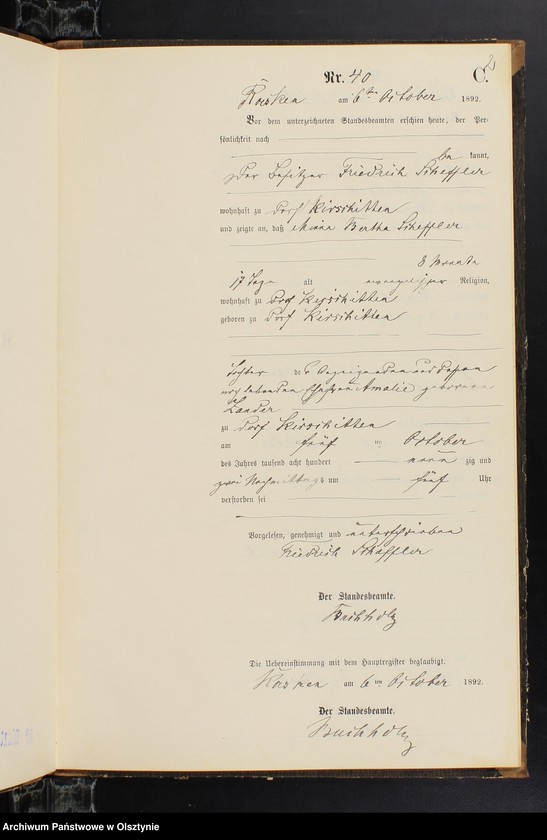 2
Nr. 40 C.
am 6ten October 1892.
Vor dem unterzeichneten Standesbeamten erschien heute, der Per-
sönlichkeit nach
be kannt,
der Besitzer Friedrich Scheffler
wohnhaft zu Dorf Kirschitten
und zeigte an, daß Bertha Scheffler
8 Monate
17 Tage alt evangelischer Religion,
wohnhaft zu Dorf Kirschitten
geboren zu Dorf Kirschitten
Tochter des Anzeigenden und dessen
noch lebenden Ehefrau Amalie geborenen
zu Dorf Kirschitten
am fünf ten October
des Jahres tausend acht hundert neun zig und
zwei Nachmittags um fünf Uhr
verstorben sei
Vorgelesen, genehmigt und unterschrieben
Friedrich Scheffler
Der Standesbeamte.
Buchholz
Die Uebereinstimmung mit dem Hauptregister beglaubigt.
am 6ten October 1892.
Der Standesbeamte.
Buchholz
Archiwum Państwowe w Olsztynie